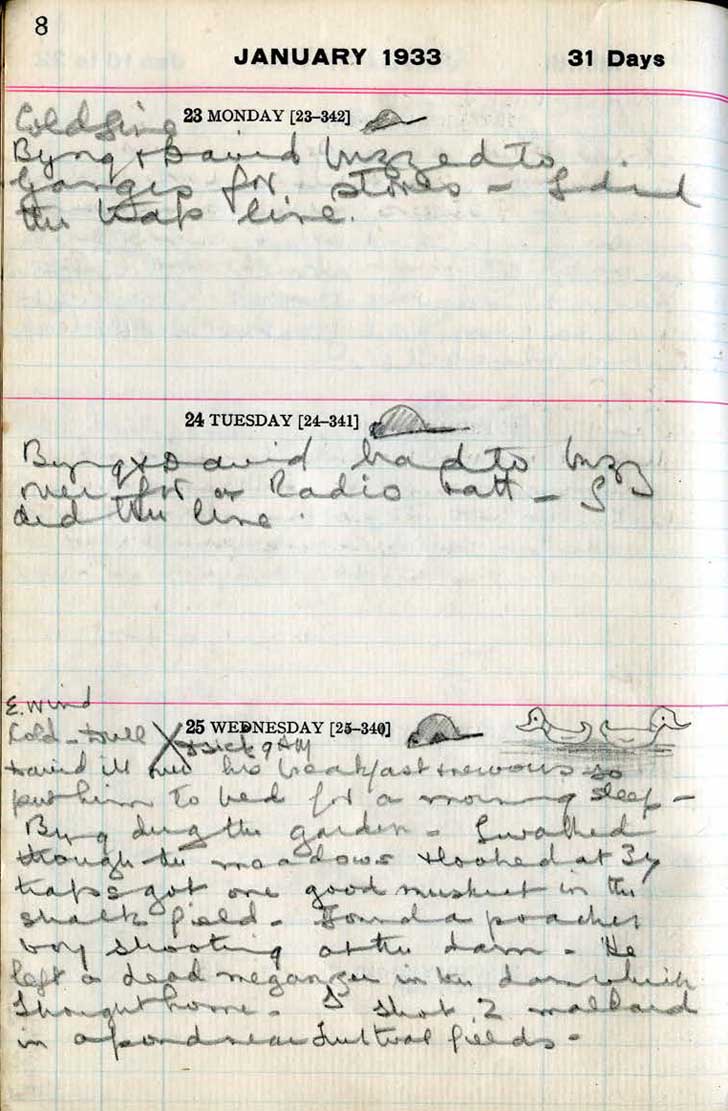 8
JANUARY 1933 31 Days
23 MONDAY [23–342]
Cold fine
Byng + David buzzed to
Ganges for stores – I did
the trap line.
24 TUESDAY [24–341]
Byng + David had to buzz
over for a Radio batt – I
did the line.
E. Wind
Cold – dull
25 WEDNESDAY [25–340]
+ sick 9 AM
David ill his breakfast + nervous so
put him to bed for a morning sleep –
Byng dug the garden – I walked
through the meadows + looked at 34
traps got one good muskrat in the
field. Found a poacher
boy shooting at the dam – He
left a dead meganzer in the dam which
I bought home. I shot 2 mallard
in a pond near fields.